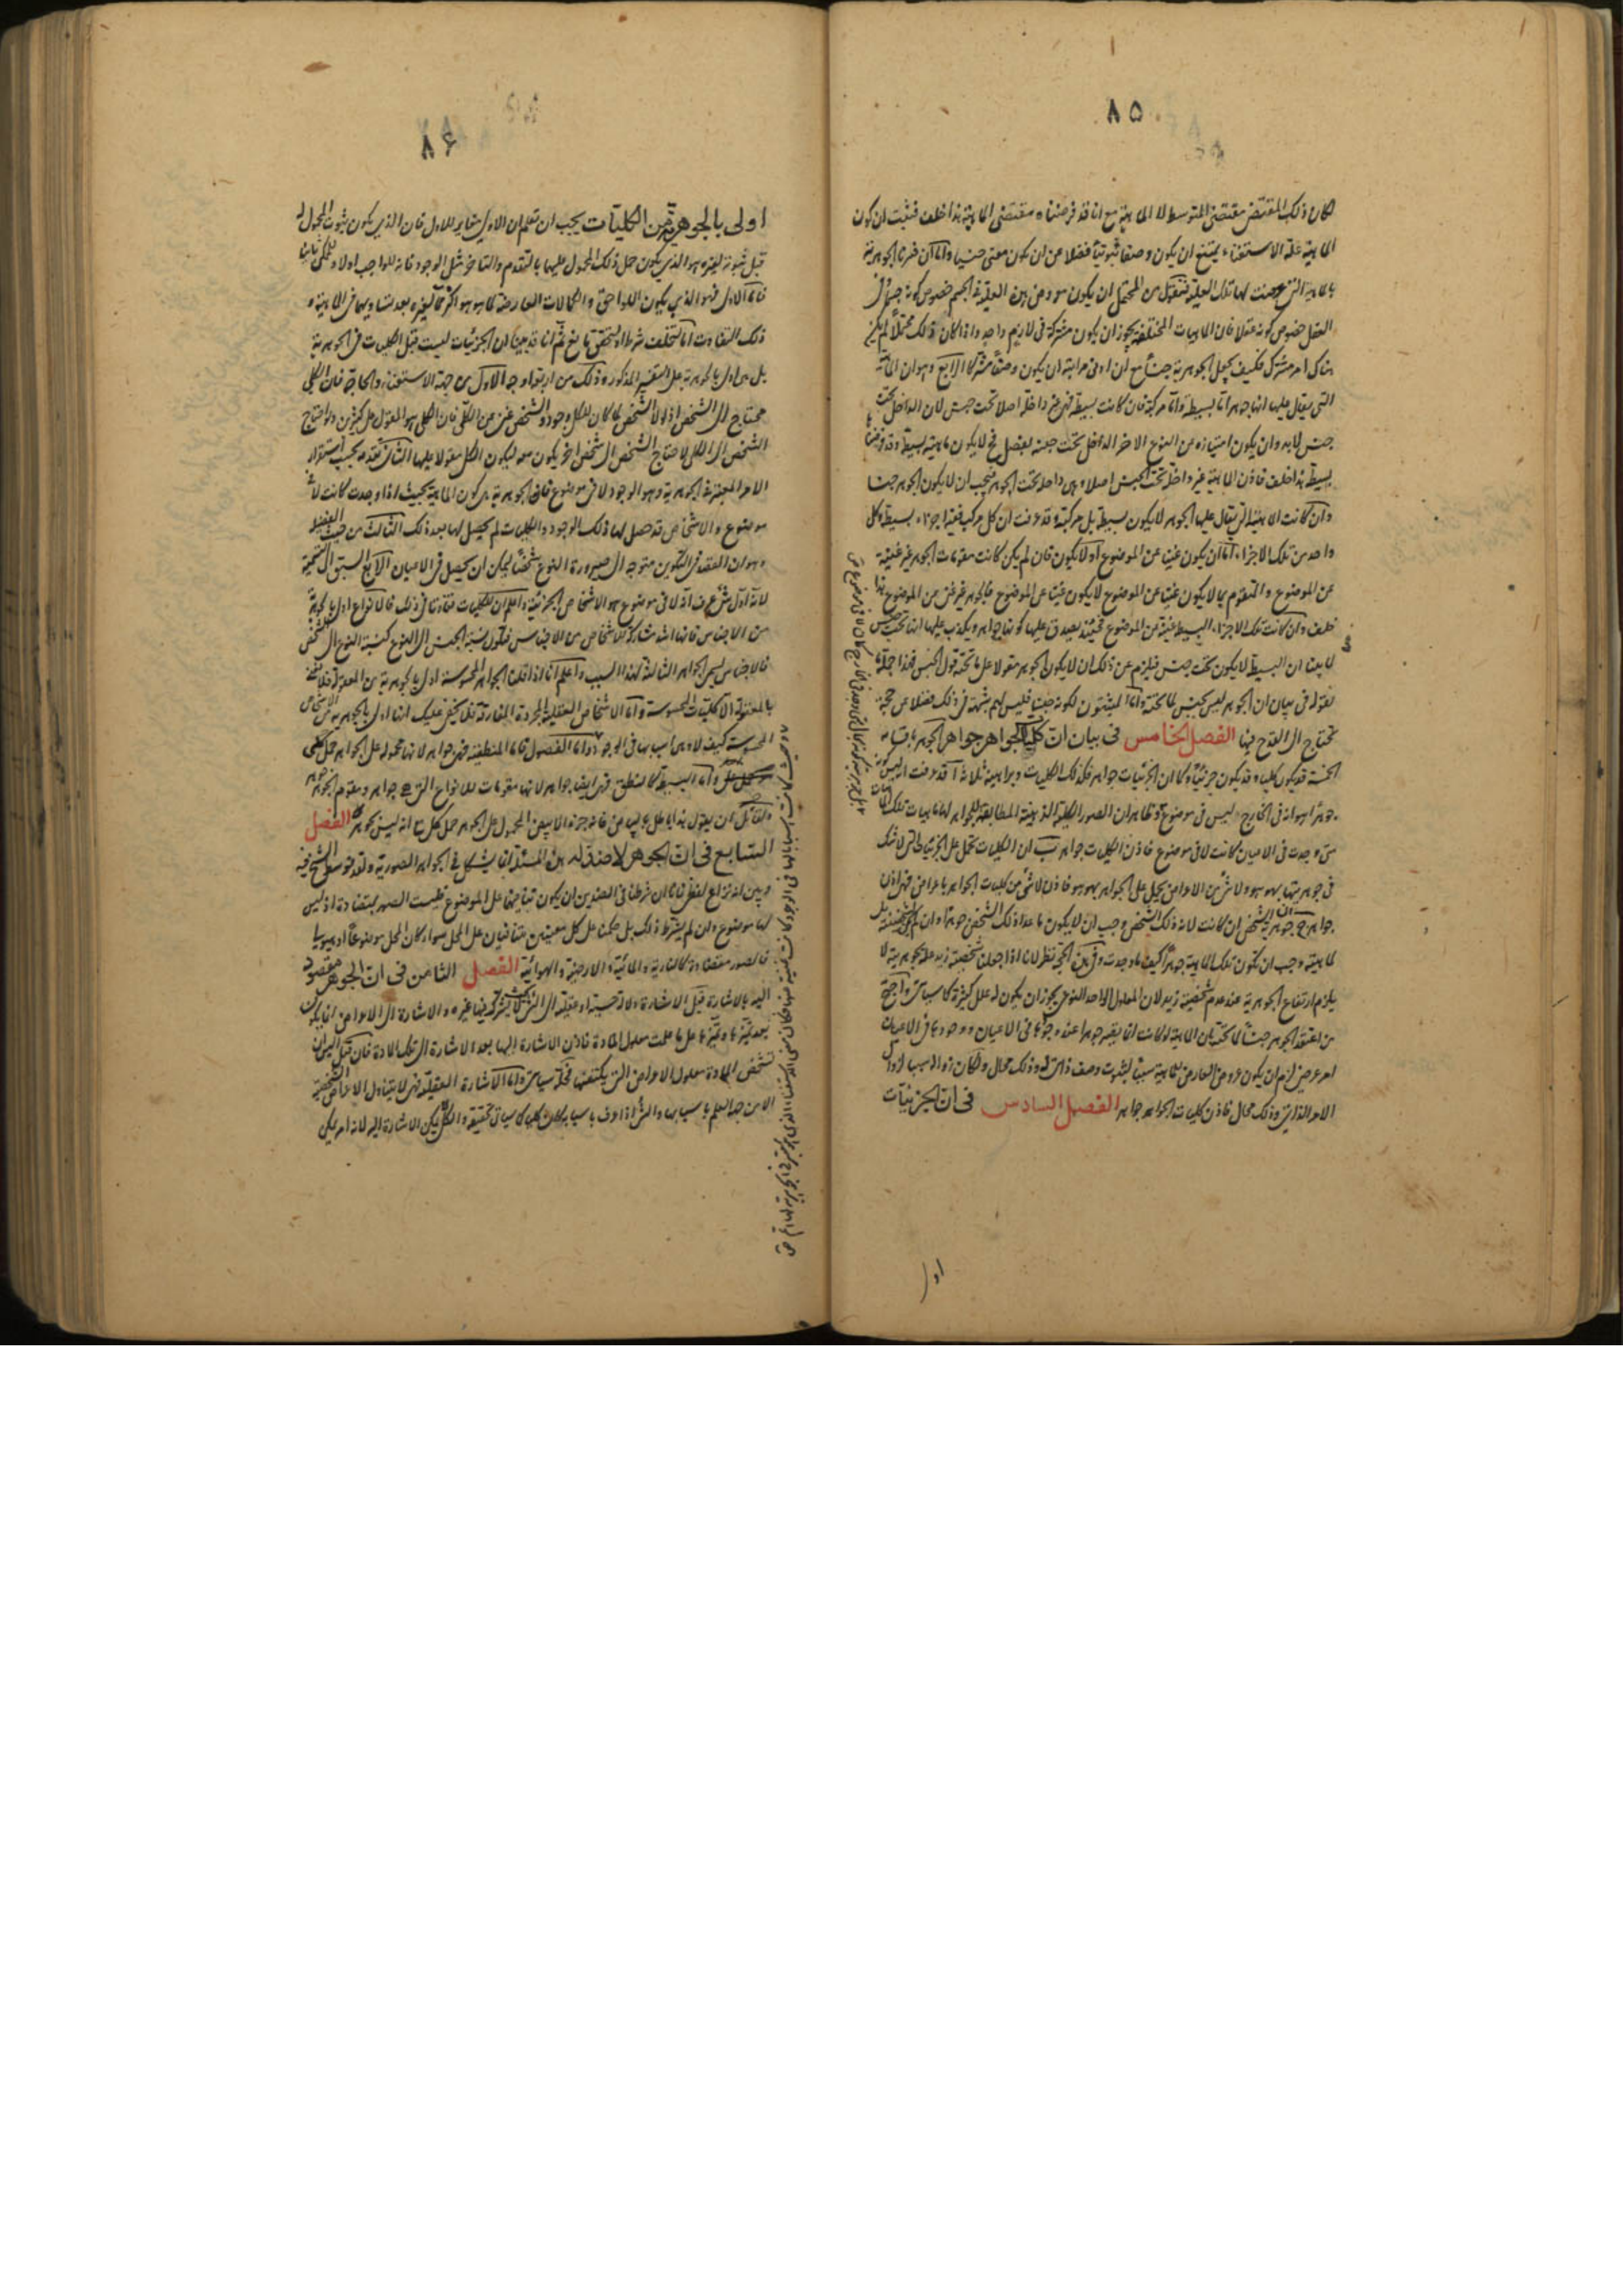 ٨٥
لكان ذلك المقتضى مقتضى المتوسط لا الماهية مع انا قد فرضناه مقتضى الماهية هذا خلف فثبت ان كون
الماهية علة الاستغناء يمتنع ان يكون وصفا ثبوتيا فضلا عن ان يكون معنى جنسيا واما ان فسرنا الجوهرية
بالماهية التى عرضت لها تلك العلية فنقول من المحتمل ان يكون معروض هذه العلية فى الجسم خصوص كونه جسما وفى
العقل خصوص كونه عقلا فان الماهيات المختلفة يجوز ان يكون مشتركة فى لازم واحد واذا كان ذلك محتملا لم يكن
هناك امر مشترك فكيف يجعل الجوهرية جنسا مع ان ادنى مراتبه ان يكون وصفا مشتركا الرابع وهو ان الماهية
التى يقال عليها انها جوهر اما بسيطة واما مركبة فان كانت بسيطة فهى غير داخلة اصلا تحت جنس لان الداخل تحت
جنس لابد وان يكون امتيازه عن النوع الاخر الداخل تحت جنسه بفصل فح لا يكون ماهيته بسيطة وقد فرضناها
بسيطة هذا خلف فاذن الماهية غير داخلة تحت الجنس اصلا وهى داخلة تحت الجوهر فيجب ان لا يكون الجوهر جنسا
وان كانت الماهية التى يقال عليها الجوهر لا يكون بسيطة بل مركبة وقد عرفت ان كل مركب ففيه اجزاء بسيطة وكل
واحد من تلك الاجزاء اما ان يكون غنيا عن الموضوع او لا يكون فان لم يكن كانت مقومات الجوهر غير غنية
عن الموضوع والمتقوم بما لا يكون غنيا عن الموضوع لا يكون غنيا عن الموضوع فالجوهر غير غنى عن الموضوع هذا
خلف وان كانت تلك الاجزاء البسيطة غنية عن الموضوع فحينئذ يصدق عليها كونها جواهر ويكذب عليها انها تحت جنس
لما بينا ان البسيط لا يكون تحت جنس فيلزم عن ذلك ان لا يكون الجوهر مقولا على ما تحته قول الجنس فهذا جملة ما
نقوله فى بيان ان الجوهر ليس بجنس لما تحته واما المثبتون لكونه جنسا فليس لهم شبهة فى ذلك فضلا عن حجة
تحتاج الى القدح فيها الفصل الخامس فى بيان ان كليات الجواهر جواهر الجوهر باقسامه
الخمسة قد يكون كليا وقد يكون جزئيا وكما ان الجزئيات جواهر فكذلك الكليات وبراهينه ثلاثة ا قد عرفت انه ليس كونه
جوهرا هو انه فى الخارج وليس فى موضوع وظاهر ان الصور الكلية الذهنية المطابقة للجواهر لها ماهيات تلك الماهيات
متى وجدت فى الاعيان كانت لا فى موضوع فاذن الكليات جواهر ب ان الكليات تحمل على الجزئيات التى لا شك
فى جوهريتها بهو هو ولا شئ من الاعراض يحمل على الجواهر بهو هو فاذن لا شئ من كليات الجواهر باعراض فهى اذن
جواهر ج جوهرية الشخص ان كانت لانه ذلك الشخص وجب ان لا يكون ما عدا ذلك الشخص جوهرا وان لم يكن لشخصيته بل
لماهيته وجب ان تكون تلك الماهية جوهرا كيف ما وجدت وفى هذه الحجة نظر لانا اذا جعلنا شخصية زيد علة لجوهريته لا
يلزم ارتفاع الجوهرية عند عدم شخصية زيد لان المعلول الواحد النوعى يجوز ان يكون له علل كثيرة كما سياتى واحتج
من اعتقد الجوهر جنسا لما تحته بان الماهية لو كانت انما يصير جوهرا عند وجودها فى الاعيان ووجودها فى الاعيان
امر عرضى لزم ان يكون عروض العارض للماهية سببا لثبوت وصف ذاتى لها وذلك محال ولكان زواله سببا لزوال
الامر الذاتى وذلك محال فاذن كليات الجواهر جواهر الفصل السادس فى ان الجزئيات
اولى
٨۶
اولى بالجوهرية من الكليات يجب ان تعلم ان الاولى مغاير للاول فان الذى يكون ثبوت المحمول له
قبل ثبوته لغيره هو الذى يكون حمل ذلك المحمول عليهما بالتقدم والتاخر مثل الوجود فانه للواجب اولا وللممكن ثانيا
فاما الاولى فهو الذى يكون اللواحق والكمالات العارضة لما هو هو اكثر مما لغيره بعد تساويهما فى الماهية و
ذلك التفاوت اما لتخلف شرط او لتحقق مانع ثم انا قد بينا ان الجزئيات ليست قبل الكليات فى الجوهرية
بل هى اولى بالجوهرية على التفسير المذكور وذلك من اربعة اوجه الاول من جهة الاستغناء والحاجة فان الكلى
محتاج الى الشخص اذ لولا الشخص لما كان للكلى وجود والشخص غنى عن الكلى فان الكلى هو المقول على كثيرين ولو احتاج
الشخص الى الكلى لاحتاج الشخص الى شخص اخر يكون معه ليكون الكلى مقولا عليهما الثانى تقدمه بحسب استقرار
الامر المعتبر فى الجوهرية وهو الوجود لا فى موضوع فان الجوهرية هى كون الماهية بحيث اذا وجدت كانت لا فى
موضوع والاشخاص قد حصل لها ذلك الوجود والكليات لم يحصل لها بعد ذلك الثالث من حيث الفضيلة
وهو ان القصد فى التكوين متوجه الى صيرورة النوع شخصا ليمكن ان يحصل فى الاعيان الرابع السبق الى التسمية
لانه اول شئ عرف انه لا فى موضوع هو الاشخاص الجزئية واعلم ان للكليات تفاوتا فى ذلك فالانواع اولى بالجوهرية
من الاجناس فانها اشد مشاركة للاشخاص من الاجناس فتكون نسبة الجنس الى النوع كنسبة النوع الى الشخص
فالاجناس هى الجواهر الثالثة لهذا السبب واعلم انا اذا قلنا الجواهر المحسوسة اولى بالجوهرية من المعقولة فلا نعنى
بالمعقولة الا كليات المحسوسة واما الاشخاص العقلية المجردة المفارقة فلا يخفى عليك انها اولى بالجوهرية من الاشخاص
المحسوسة كيف لا وهى اسبابها فى الوجود واما الفصول فاما المنطقية فهى جواهر لانها محمولة على الجواهر حمل على
واما البسيطة كالنطق فهى ايضا جواهر لانها مقومات للانواع التى هى جواهر ومقوم الجوهر جوهر
ولقائل ان يقول هذا باطل بالبياض فانه جزء الابيض المحمول على الجوهر حمل على مع انه ليس بجوهر الفصل
السابع فى ان الجوهر لا ضد له هذه المسئلة انما يشكل فى الجواهر الصورية ولقد توسع الشيخ فيه
وبين انه نزاع لفظى فانا ان شرطنا فى الضدين ان يكون تعاقبهما على الموضوع فليست الصور بمتضادة اذ ليس
لها موضوع وان لم يشترط ذلك بل حكمنا على كل معنيين متنافيان على المحل سواء كان المحل موضوعا او هيولى
فالصور متضادة كالنارية والمائية والارضية والهوائية الفصل الثامن فى ان الجوهر مقصود
اليه بالاشارة قيل الاشارة دلالة حسية او عقلية الى الشئ لا يشركه فيها غيره والاشارة الى الاعراض انما يكون
بعد تميزها وتميزها على ما علمت معلول المادة فاذن الاشارة اليها بعد الاشارة الى تلك المادة فان قيل اليس ان
تشخص المادة معلول الاعراض التى يكتنفها فحله سياتى واما الاشارة العقلية فهى لا يتناول الاعراض الشخصية
الا من جهة العلم باسبابها والشئ اذا عرف باسبابه كان كليا كما سياتى تحقيقه والكلى لا يمكن الاشارة اليه لانه امر يمكن